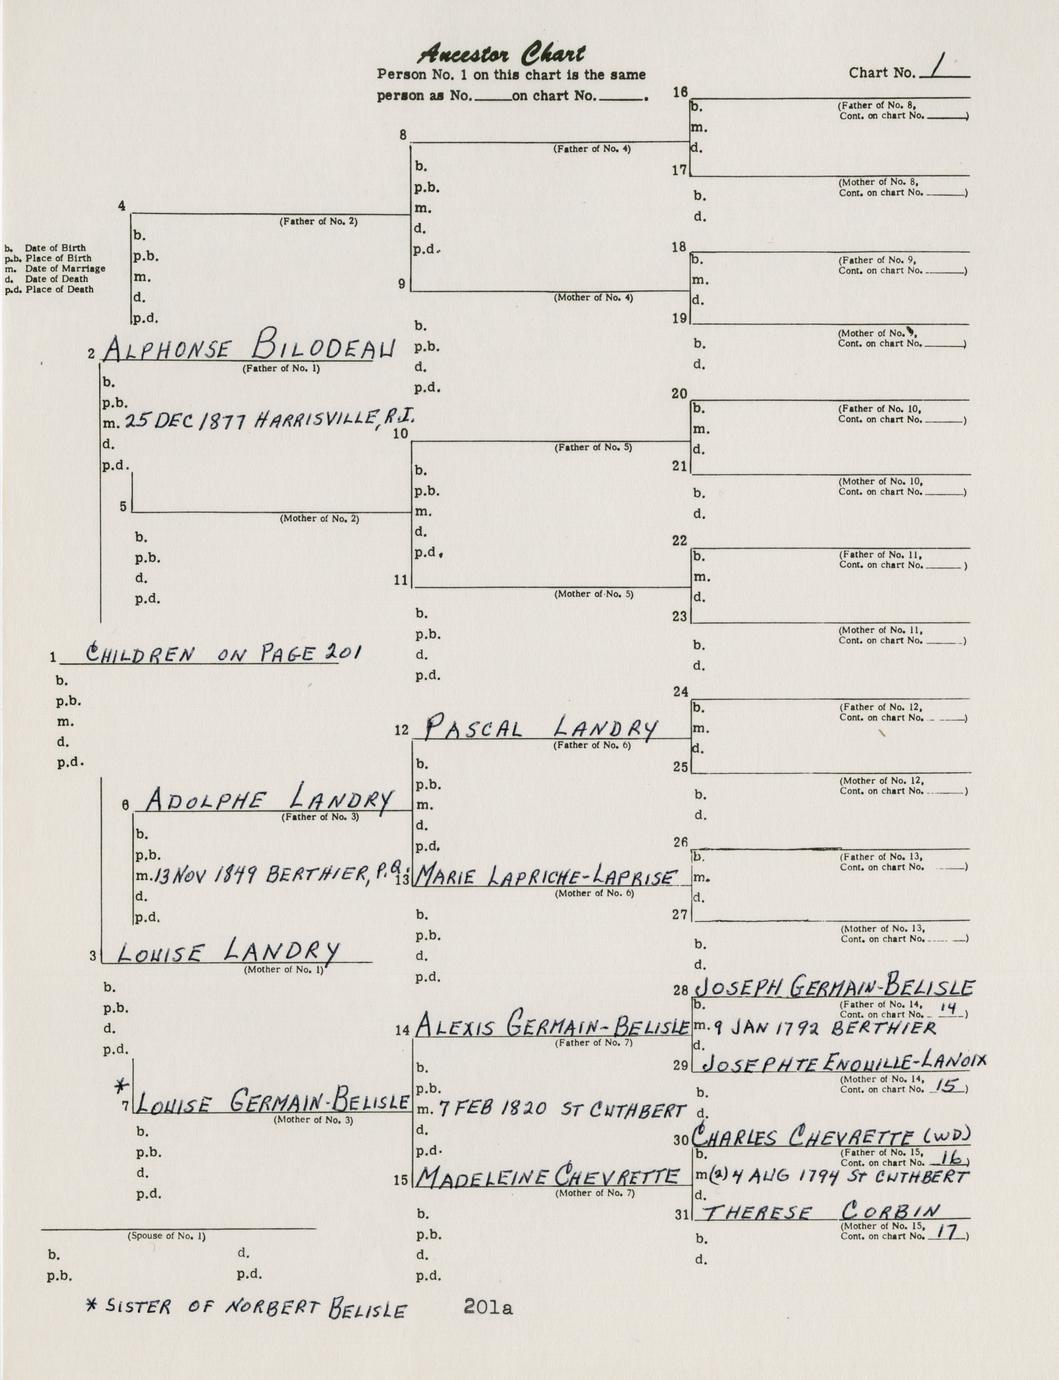 Ancestor Chart
Person No. 1 on this chart is the same
person as No. on chart No. .
Chart No. 1
b. Date of Birth
p.b. Place of Birth
m. Date of Marriage
d. Date of Death
p.d. Place of Death
1 CHILDREN ON PAGE 201
b.
p.b.
m.
d.
p.d.
2 ALPHONSE BILODEAU
(Father of No. 1)
b.
p.b.
m. 25 DEC 1877 HARRISVILLE, R.I.
d.
p.d.
3 LOUISE LANDRY
(Mother of No. 1)
b.
p.b.
d.
p.d.
(Spouse of No. 1)
b.
d.
p.b.
p.d.
4
(Father of No. 2)
b.
p.b.
m.
d.
p.d.
5
(Mother of No. 2)
b.
p.b.
d.
p.d.
6 ADOLPHE LANDRY
(Father of No. 3)
b.
p.b.
m. 13 NOV 1849 BERTHIER, P.Q.
d.
p.d.
*
7 LOUISE GERMAIN-BELISLE
(Mother of No. 3)
b.
p.b.
d.
p.d.
8
(Father of No. 4)
b.
p.b.
m.
d.
p.d.
9
(Mother of No. 4)
b.
p.b.
d.
p.d.
10
(Father of No. 5)
b.
p.b.
m.
d.
p.d.
11
(Mother of No. 5)
b.
p.b.
d.
p.d.
12 PASCAL LANDRY
(Father of No. 6)
b.
p.b.
m.
d.
p.d.
13 MARIE LAPRICHE-LAPRISE
(Mother of No. 6)
b.
p.b.
d.
p.d.
14 ALEXIS GERMAIN-BELISLE
(Father of No. 7)
b.
p.b.
m. 7 FEB 1820 ST CUTHBERT
d.
p.d.
15 MADELEINE CHEVRETTE
(Mother of No. 7)
b.
p.b.
d.
p.d.
16
b.
(Father of No. 8,
Cont. on chart No. )
m.
d.
17
(Mother of No. 8,
Cont. on chart No. )
b.
d.
18
b.
(Father of No. 9,
Cont. on chart No. )
m.
d.
19
(Mother of No. 9,
Cont. on chart No. )
b.
d.
20
b.
(Father of No. 10,
Cont. on chart No. )
m.
d.
21
(Mother of No. 10,
Cont. on chart No. )
b.
d.
22
b.
(Father of No. 11,
Cont. on chart No. )
m.
d.
23
(Mother of No. 11,
Cont. on chart No. )
b.
d.
24
b.
(Father of No. 12,
Cont. on chart No. )
m.
d.
25
(Mother of No. 12,
Cont. on chart No. )
b.
d.
26
b.
(Father of No. 13,
Cont. on chart No. )
m.
d.
27
(Mother of No. 13,
Cont. on chart No. )
b.
d.
28 JOSEPH GERMAIN-BELISLE
b.
(Father of No. 14,
Cont. on chart No. 14)
m. 9 JAN 1792 BERTHIER
d.
29 JOSEPHTE ENOUILLE-LANOIX
(Mother of No. 14,
Cont. on chart No. 15)
b.
d.
30 CHARLES CHEVRETTE (WD)
b.
(Father of No. 15,
Cont. on chart No. 16)
m(2) 4 AUG 1794 ST CUTHBERT
d.
31 THERESE CORBIN
(Mother of No. 15,
Cont. on chart No. 17)
b.
d.
* SISTER OF NORBERT BELISLE
201a